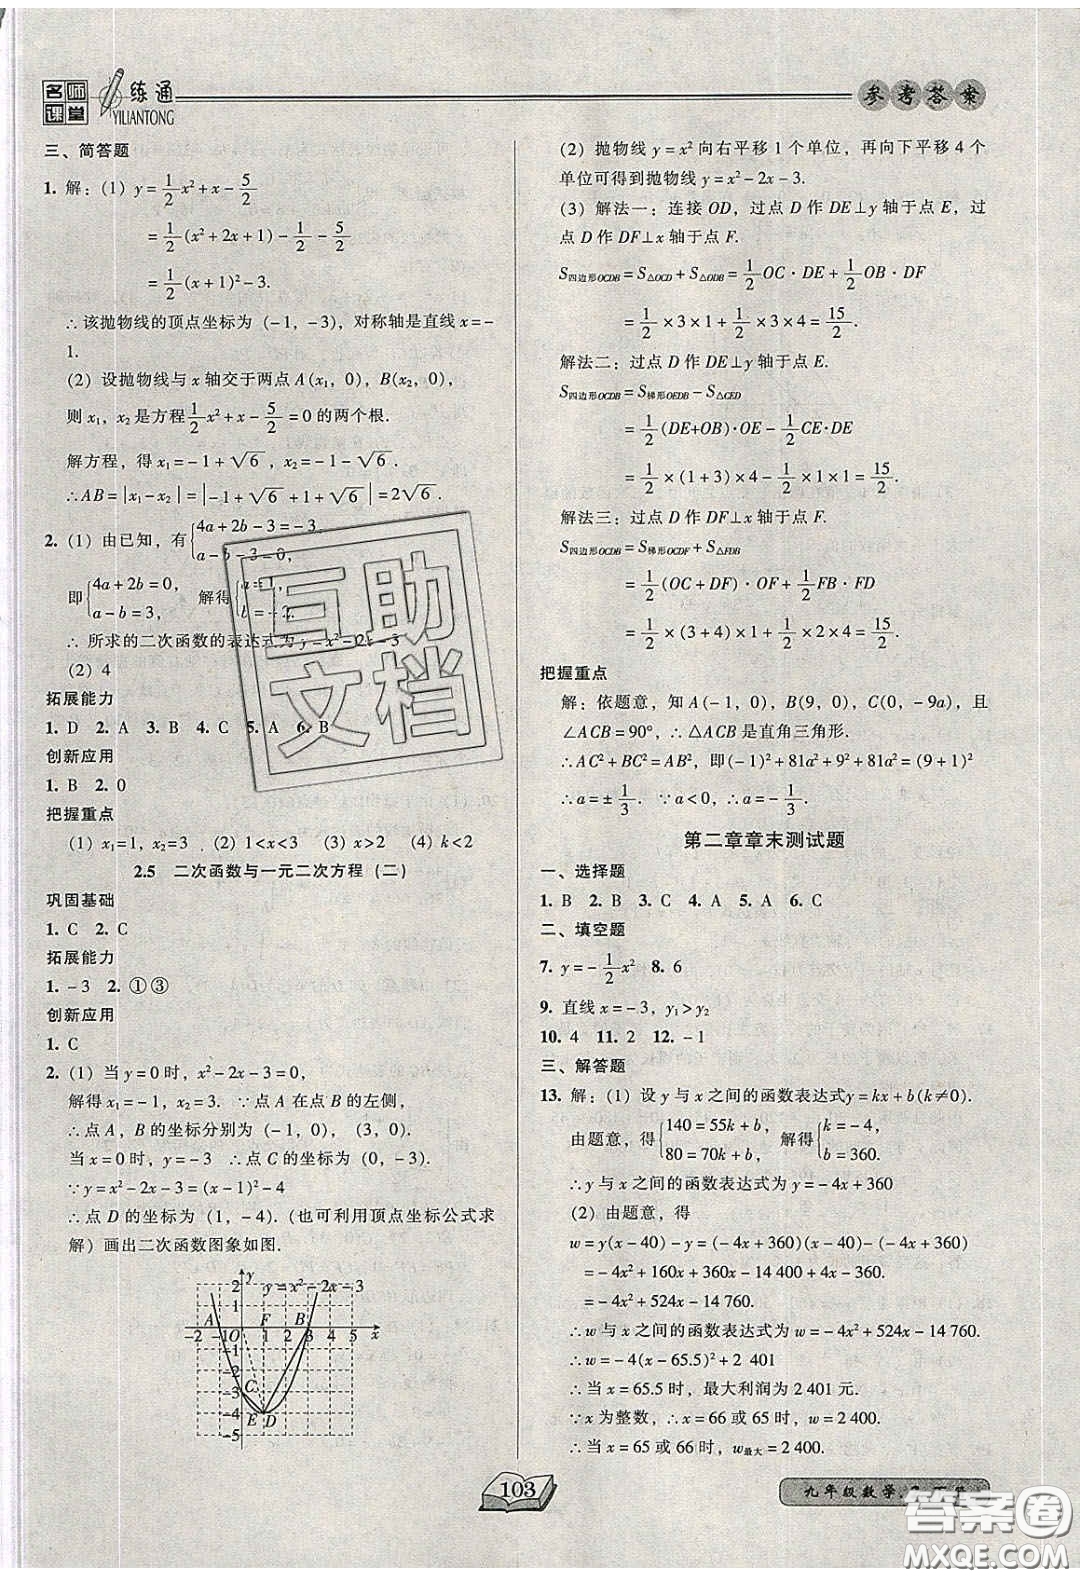 名师课堂
一练通
YILIANTONG
参考答案
三、简答题
1. 解：(1) y=1/2x²+x-5/2
=1/2(x²+2x+1)-1/2-5/2
=1/2(x+1)²-3.
∴该抛物线的顶点坐标为 (-1，-3)，对称轴是直线 x=-
1.
(2) 设抛物线与 x 轴交于两点 A(x₁，0)，B(x₂，0)，
则 x₁，x₂是方程1/2x²+x-5/2=0的两个根.
解方程，得 x₁=-1+√6，x₂=-1-√6.
∴AB=|x₁-x₂|=|-1+√6+1+√6|=2√6.
2. (1) 由已知，有{4a+2b-3=-3，
a-b-3=0，
即{4a+2b=0，
a-b=3，
解得{a=1，
b=-2.
∴ 所求的二次函数的表达式为 y=x²-2x-3
(2) 4
拓展能力
1. D 2. A 3. B 4. C 5. A 6. B
创新应用
1. B 2. 0
把握重点
(1) x₁=1，x₂=3 (2) 1<x<3 (3) x>2 (4) k<2
2.5 二次函数与一元二次方程（二）
巩固基础
1. C 2. C
拓展能力
1. -3 2. ①③
创新应用
1. C
2. (1) 当 y=0 时，x²-2x-3=0，
解得 x₁=-1，x₂=3. ∵点 A 在点 B 的左侧，
∴点 A，B 的坐标分别为 (-1，0)，(3，0).
当 x=0 时，y=-3 ∴点 C 的坐标为 (0，-3).
∵y=x²-2x-3=(x-1)²-4
∴点 D 的坐标为 (1，-4). (也可利用顶点坐标公式求
解) 画出二次函数图象如图.
y
y=x²-2x-3
2
1
A F B
-2 -1 O 1 2 3 4 5 x
-1
-2
-3 C
-4 E D
-5
(2) 抛物线 y=x² 向右平移 1 个单位，再向下平移 4 个
单位可得到抛物线 y=x²-2x-3.
(3) 解法一：连接 OD，过点 D 作 DE⊥y 轴于点 E，过
点 D 作 DF⊥x 轴于点 F.
S四边形OCDB=S△OCD+S△ODB=1/2OC·DE+1/2OB·DF
=1/2×3×1+1/2×3×4=15/2.
解法二：过点 D 作 DE⊥y 轴于点 E.
S四边形OCDB=S梯形OEDB-S△CED
=1/2(DE+OB)·OE-1/2CE·DE
=1/2×(1+3)×4-1/2×1×1=15/2.
解法三：过点 D 作 DF⊥x 轴于点 F.
S四边形OCDB=S梯形OCDF+S△FDB
=1/2(OC+DF)·OF+1/2FB·FD
=1/2×(3+4)×1+1/2×2×4=15/2.
把握重点
解：依题意，知 A(-1，0)，B(9，0)，C(0，-9a)，且
∠ACB=90°，∴△ACB是直角三角形.
∴AC²+BC²=AB²，即(-1)²+81a²+9²+81a²=(9+1)²
∴a=±1/3. ∵a<0，∴a=-1/3.
第二章章末测试题
一、选择题
1. B 2. B 3. C 4. A 5. A 6. C
二、填空题
7. y=-1/2x² 8. 6
9. 直线 x=-3，y₁>y₂
10. 4 11. 2 12. -1
三、解答题
13. 解：(1) 设 y 与 x 之间的函数表达式y=kx+b(k≠0).
由题意，得{140=55k+b，
80=70k+b，
解得{k=-4，
b=360.
∴y 与 x 之间的函数表达式为 y=-4x+360
(2) 由题意，得
w=y(x-40)-y=(-4x+360)(x-40)-(-4x+360)
=-4x²+160x+360x-14 400+4x-360
=-4x²+524x-14 760.
∴w 与 x 之间的函数表达式为 w=-4x²+524x-14 760.
∴w=-4(x-65.5)²+2 401
∴当 x=65.5 时，最大利润为 2 401 元.
∵x 为整数，∴x=66 或 65 时，w=2 400.
∴当 x=65 或 66 时，w最大=2 400.
互助
文档
103
九年级数学
答案圈
MXQE.COM